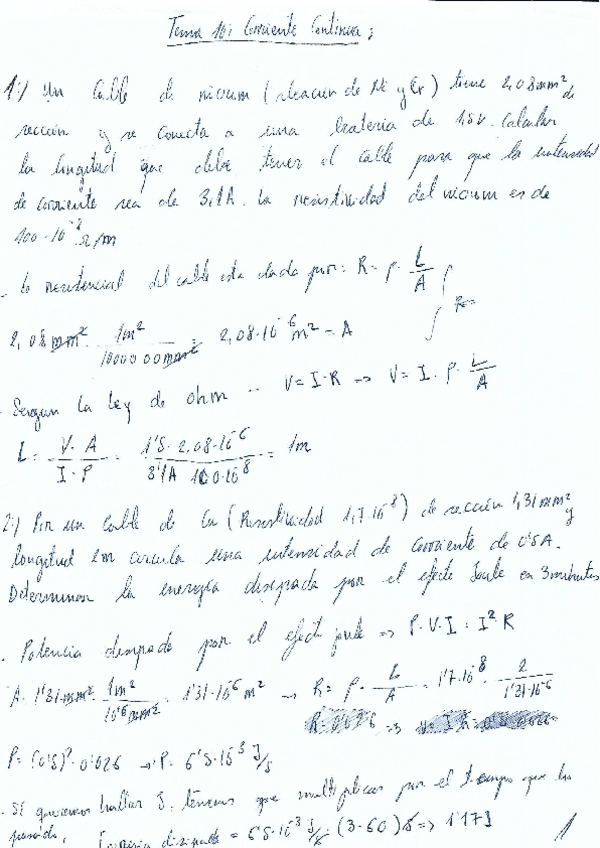 Tema 10: Corriente Continua:
1:) Un Cable de nicrum (aleación de Ni y Cr) tiene 2,08mm² de
sección y se conecta a una batería de 1,5V. Calcular
la longitud que debe tener el cable para que la intensidad
de corriente sea de 3,1A. La resistividad del nicrum es de
100·10⁻⁸ Ω/m
- la resistencial del cable esta dada por: R = ρ · L/A
2,08 mm² · 1m²/1000000mm² = 2,08·10⁻⁶ m² = A
- Seogun la Ley de ohm -- V = I·R => V = I · ρ · L/A
L = V·A / I·ρ = 1'5 · 2,08·10⁻⁶ / 3'1A 100·10⁻⁸ = 1m
2:) Por un Cable de Cu (Resistividad 1,7·10⁻⁸) de sección 1,31mm² y
longitud 2m circula una intensidad de corriente de 0'5A.
Determinar la energía disipada por el efecto Joule en 3 minutos
. Potencia disipada por el efect joule => P = V·I = I²·R
A = 1'31 mm² · 1m²/10⁶ mm² = 1'31·10⁻⁶ m² -> R = ρ · L/A = 1'7·10⁻⁸ · 2/1'31·10⁻⁶
P = (0'5)² · 0'026 -> P = 6'5·10⁻³ J/s
- Si queremos hallar J, tenemos que multiplicar por el tiempo que ha
pasado, Energia disipada = 6'5·10⁻³ J/s · (3·60)s => 1'17J
1